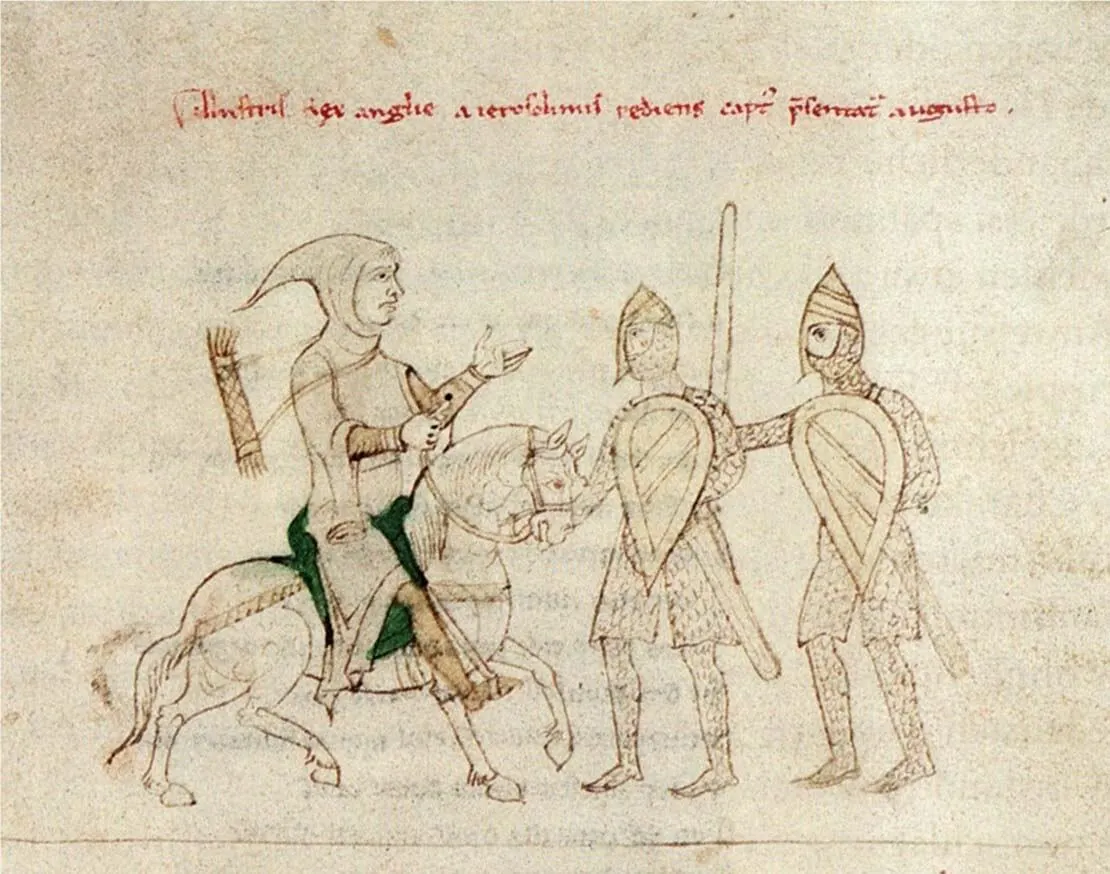 Illustris rex anglie a ierosolimis rediens capt᾽ p̄sentat᾽ augusto.